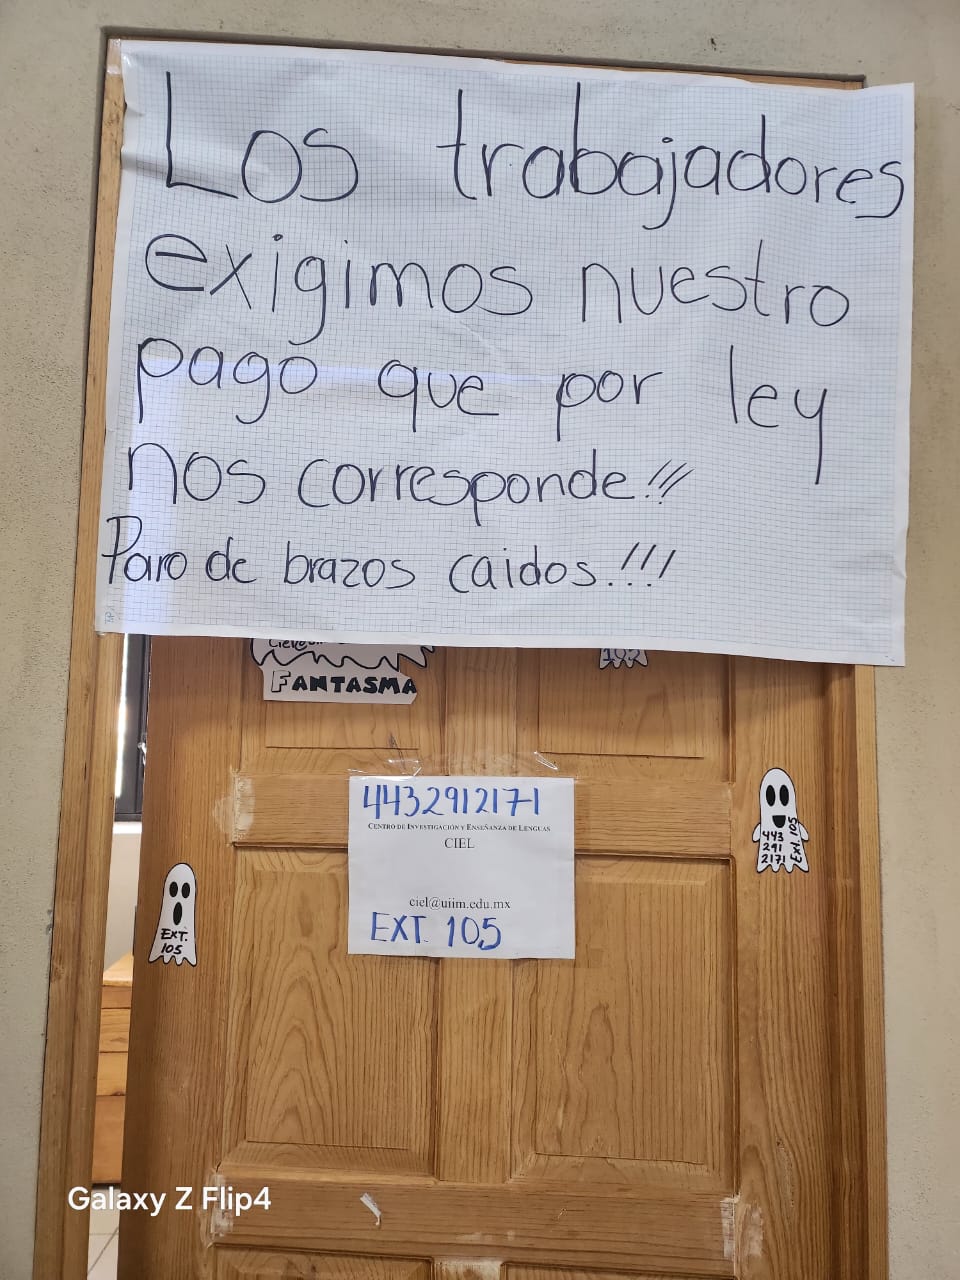 Los trabajadores
exigimos nuestro
pago que por ley
nos corresponde!!!
Paro de brazos caidos.!!!
FANTASMA
102
4432912171
CENTRO DE INVESTIGACIÓN Y ENSEÑANZA DE LENGUAS
CIEL
ciel@uiim.edu.mx
EXT. 105
443
291
2171
Ext. 105
EXT.
105
Galaxy Z Flip4